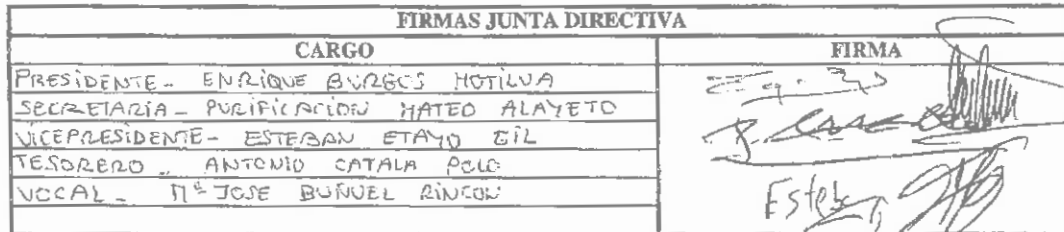 FIRMAS JUNTA DIRECTIVA
CARGO FIRMA
PRESIDENTE - ENRIQUE BURGOS MOTILVA
SECRETARIA - PURIFICACION MATEO ALAYETO
VICEPRESIDENTE - ESTEBAN ETAYO GIL
TESORERO - ANTONIO CATALA POLO
VOCAL - Mª JOSE BUÑUEL RINCON